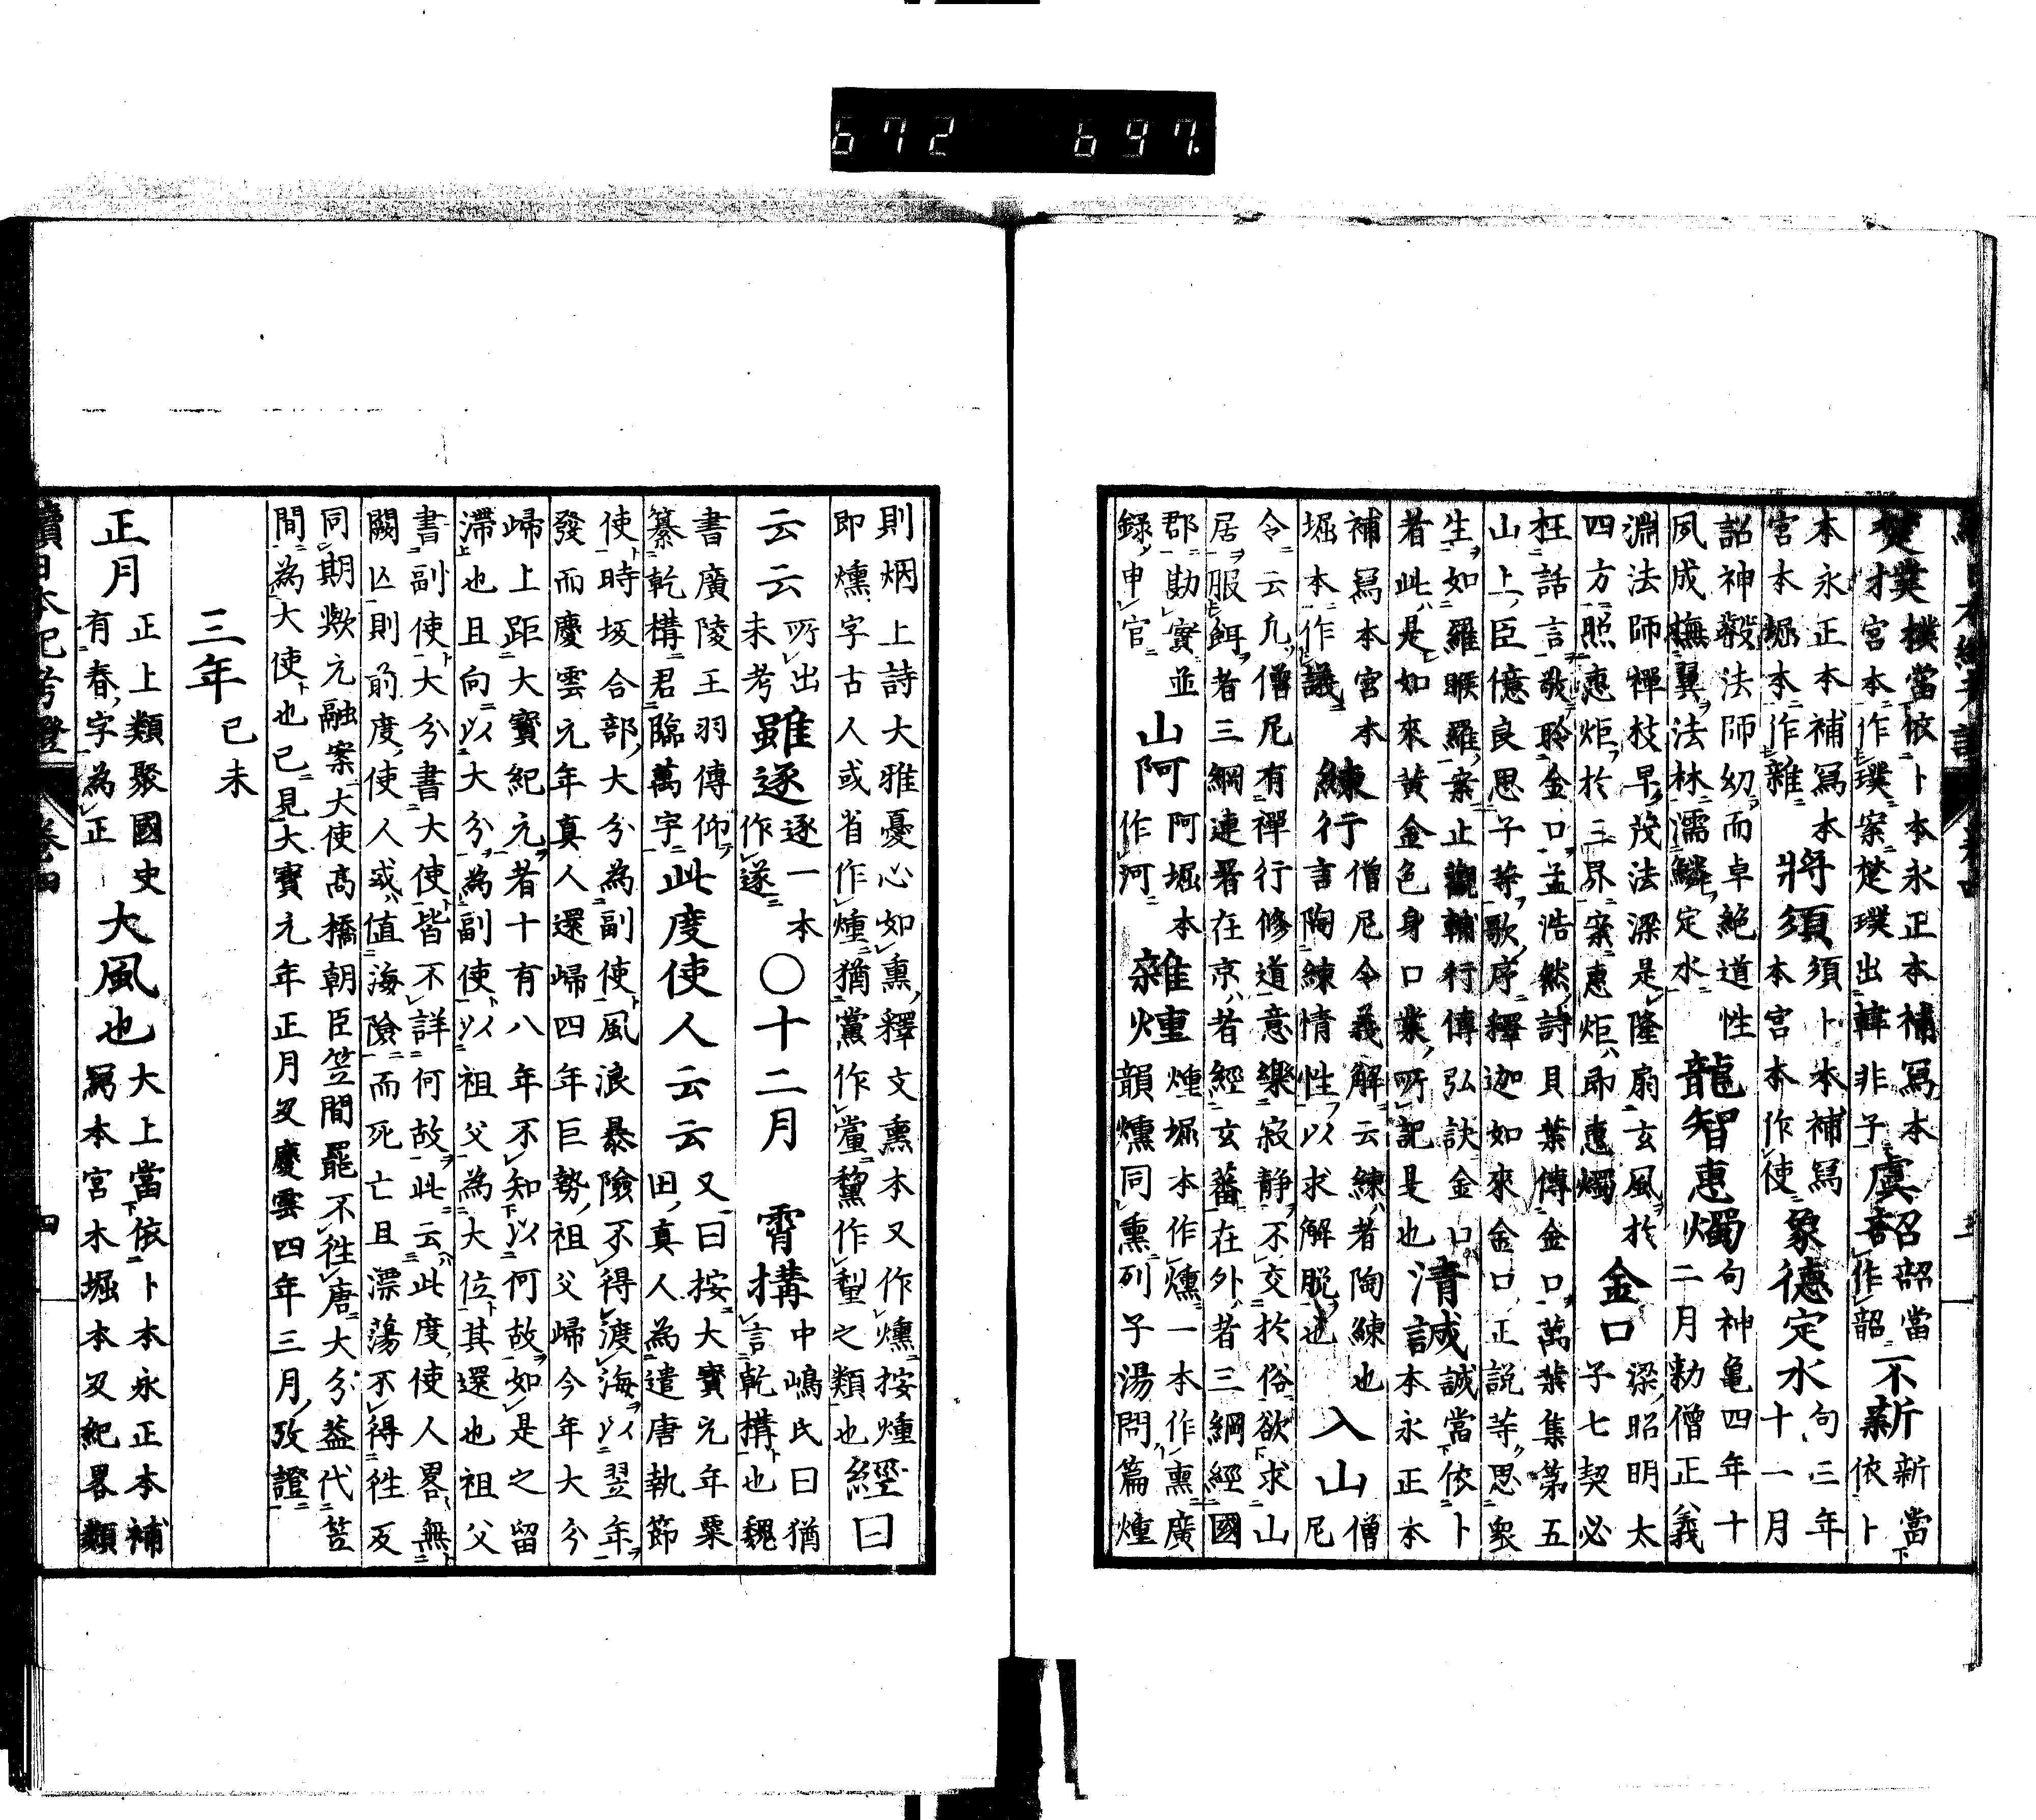 672 697.
楚璞 樸當依卜本永正本補寫本
才宮本作璞案楚璞出韓非子 虞韶 韶當
作韶 不新 新當
依卜
本永正本補寫本
宮本堀本作雜 將須 須卜本補寫
本宮本作使 象德定水 句三年
十一月
詔神叡法師幼而卓絕道性
夙成撫翼法林濡鱗定水 龍智惠燭 句神龜四年十
二月勅僧正義
淵法師禪枝早茂法梁是隆扇玄風於
四方照惠炬於三界案惠炬即惠燭 金口 梁昭明太
子七契必
枉話言敬聆金口孟浩然詩貝葉傳金口萬葉集第五
山上臣億良思子等歌序釋迦如來金口正說等思衆
生如羅睺羅案止觀輔行傳弘訣金口
者此是如來黃金色身口業所記是也 清誠 誠當依卜
本永正本
補寫本宮本
堀本作議 練行 僧尼令義解云練者陶練也
言陶練情性以求解脫也 入山 僧
尼
令云凢僧尼有禪行修道意樂寂靜不交於俗欲求山
居服餌者三綱連署在京者經玄蕃在外者三綱經國
郡勘實並
錄申官 山阿 阿堀本
作河 雜煄 煄堀本作燻一本作熏廣
韻燻同熏列子湯問篇煄
則炳上詩大雅憂心如熏釋文熏本又作燻按煄
即燻字古人或省作煄猶黨作黨黧作犁之類也 經曰
云云 所出
未考 雖逐 逐一本
作遂 〇十二月 霄構 中嶋氏曰猶
言乾構也魏
書廣陵王羽傳仰
纂乾構君臨萬宇 此度使人云云 又曰按大寶元年粟
田真人為遣唐執節
使時坂合部大分為副使風浪暴險不得渡海以翌年
發而慶雲元年真人還歸四年巨勢祖父歸今年大分
歸上距大寶紀元者十有八年不知以何故如是之留
滯也且向以大分為副使以祖父為大位其還也祖父
書副使大分書大使皆不詳何故此云此度使人畧無
闕亾則前度使人或值海險而死亡且漂蕩不得徃及
同期歟元融案大使高橋朝臣笠間罷不徃唐大分蓋代笠
間為大使也已見大寶元年正月及慶雲四年三月攷證
三年 己未
正月 正上類聚國史
有春字為正 大風也 大上當依卜本永正本補
寫本宮本堀本及紀畧類
續日本紀考證 卷四 四